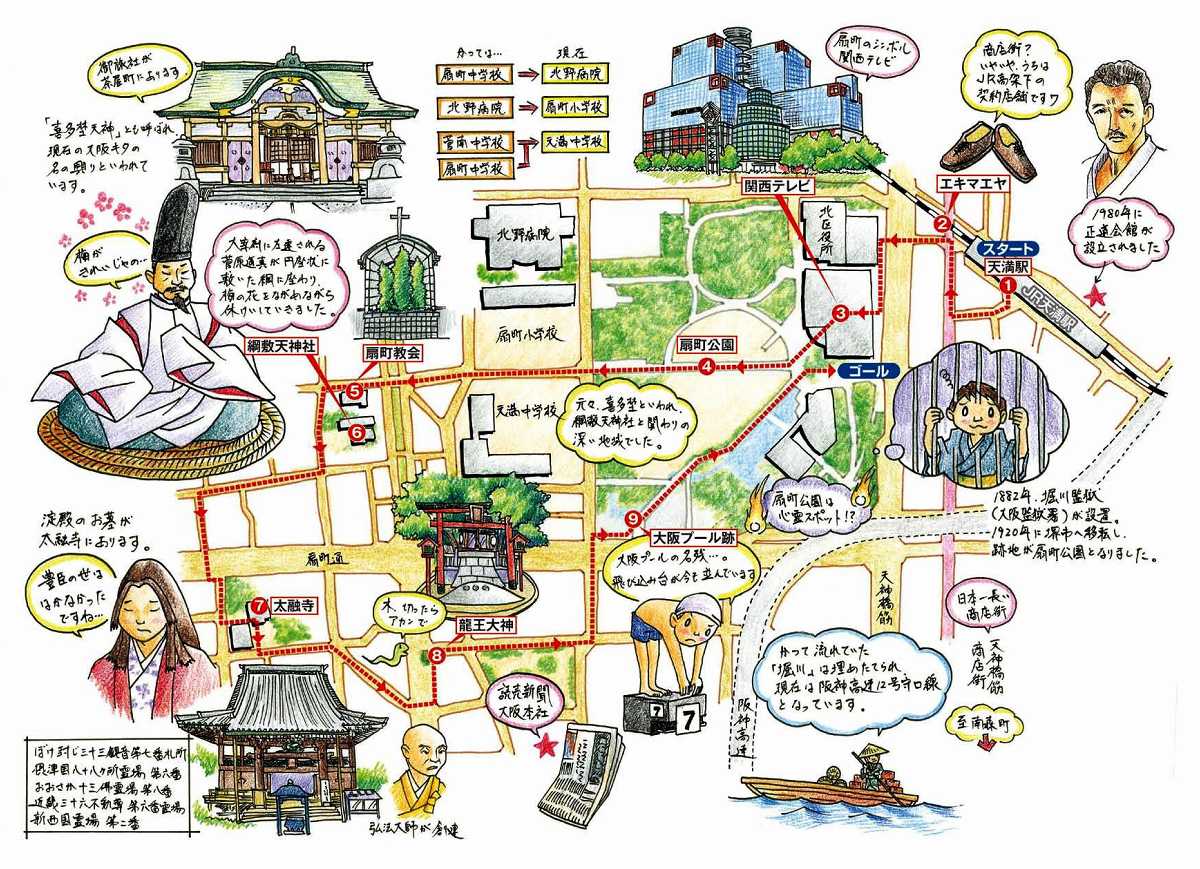 御旅社が
茶屋町にあります。
「喜多埜天神」とも呼ばれ、
現在の大阪キタの
名の興りといわれて
います。
梅が
きれいじゃの…
大宰府に左遷される
菅原道真が円座状に
敷いた綱に座わり、
梅の花をながめながら
休けいしていきました。
かつては…
現在
扇町中学校
北野病院
北野病院
扇町小学校
菅南中学校
天満中学校
扇町中学校
扇町のシンボル
関西テレビ
商店街?
いやいや、うちは
JR高架下の
契約店舗です
1980年に
正道会館が
設立されました
関西テレビ
エキマエヤ
2
スタート
天満駅
1
JR天満駅
北区役所
3
北野病院
扇町小学校
扇町公園
4
ゴール
綱敷天神社
扇町教会
5
6
天満中学校
元々、喜多埜といわれ、
綱敷天神社と関わりの
深い地域でした。
扇町公園は
心霊スポット!?
1882年、堀川監獄
(大阪監獄署)が設置。
1920年に堺市へ移転し、
跡地が扇町公園となりました。
淀殿のお墓が
太融寺にあります。
豊臣の世は
はかなかった
ですね…
扇町通
9
大阪プール跡
大阪プールの名残…。
飛び込み台が今も並んでいます
7
太融寺
木、切ったら
アカンで
龍王大神
8
読売新聞
大阪本社
7
7
天神橋筋
日本一長い
商店街
天神橋筋
商店街
至南森町
かつて流れていた
「堀川」は埋めたてられ、
現在は阪神高速12号守口線
となっています。
阪神高速
ぼけ封じ三十三観音第七番札所
摂津国八十八ヶ所霊場 第六番
おおさか十三佛霊場 第八番
近畿三十六不動尊 第六番霊場
新西国霊場 第二番
弘法大師が創建